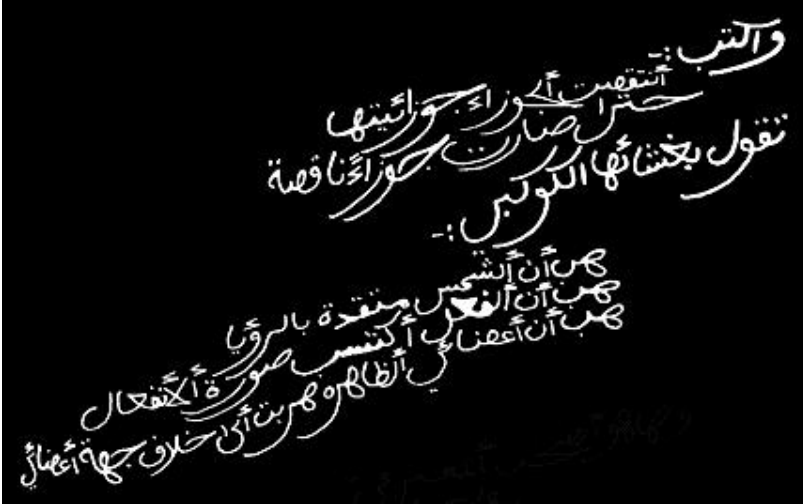 واكتب :-
أنتقصت ألجوزاء جوزائيتها
حتى صارت جوزاء ناقصة
تقول بغشائها الكوكبي :-
هب أن ألشمس متقدة بالرؤيا
هب أن ألفعل أكتسب صورة ألأنفعال
هب أن أعضائي ألظاهره هربت ألى خلاف جهة أعضائي